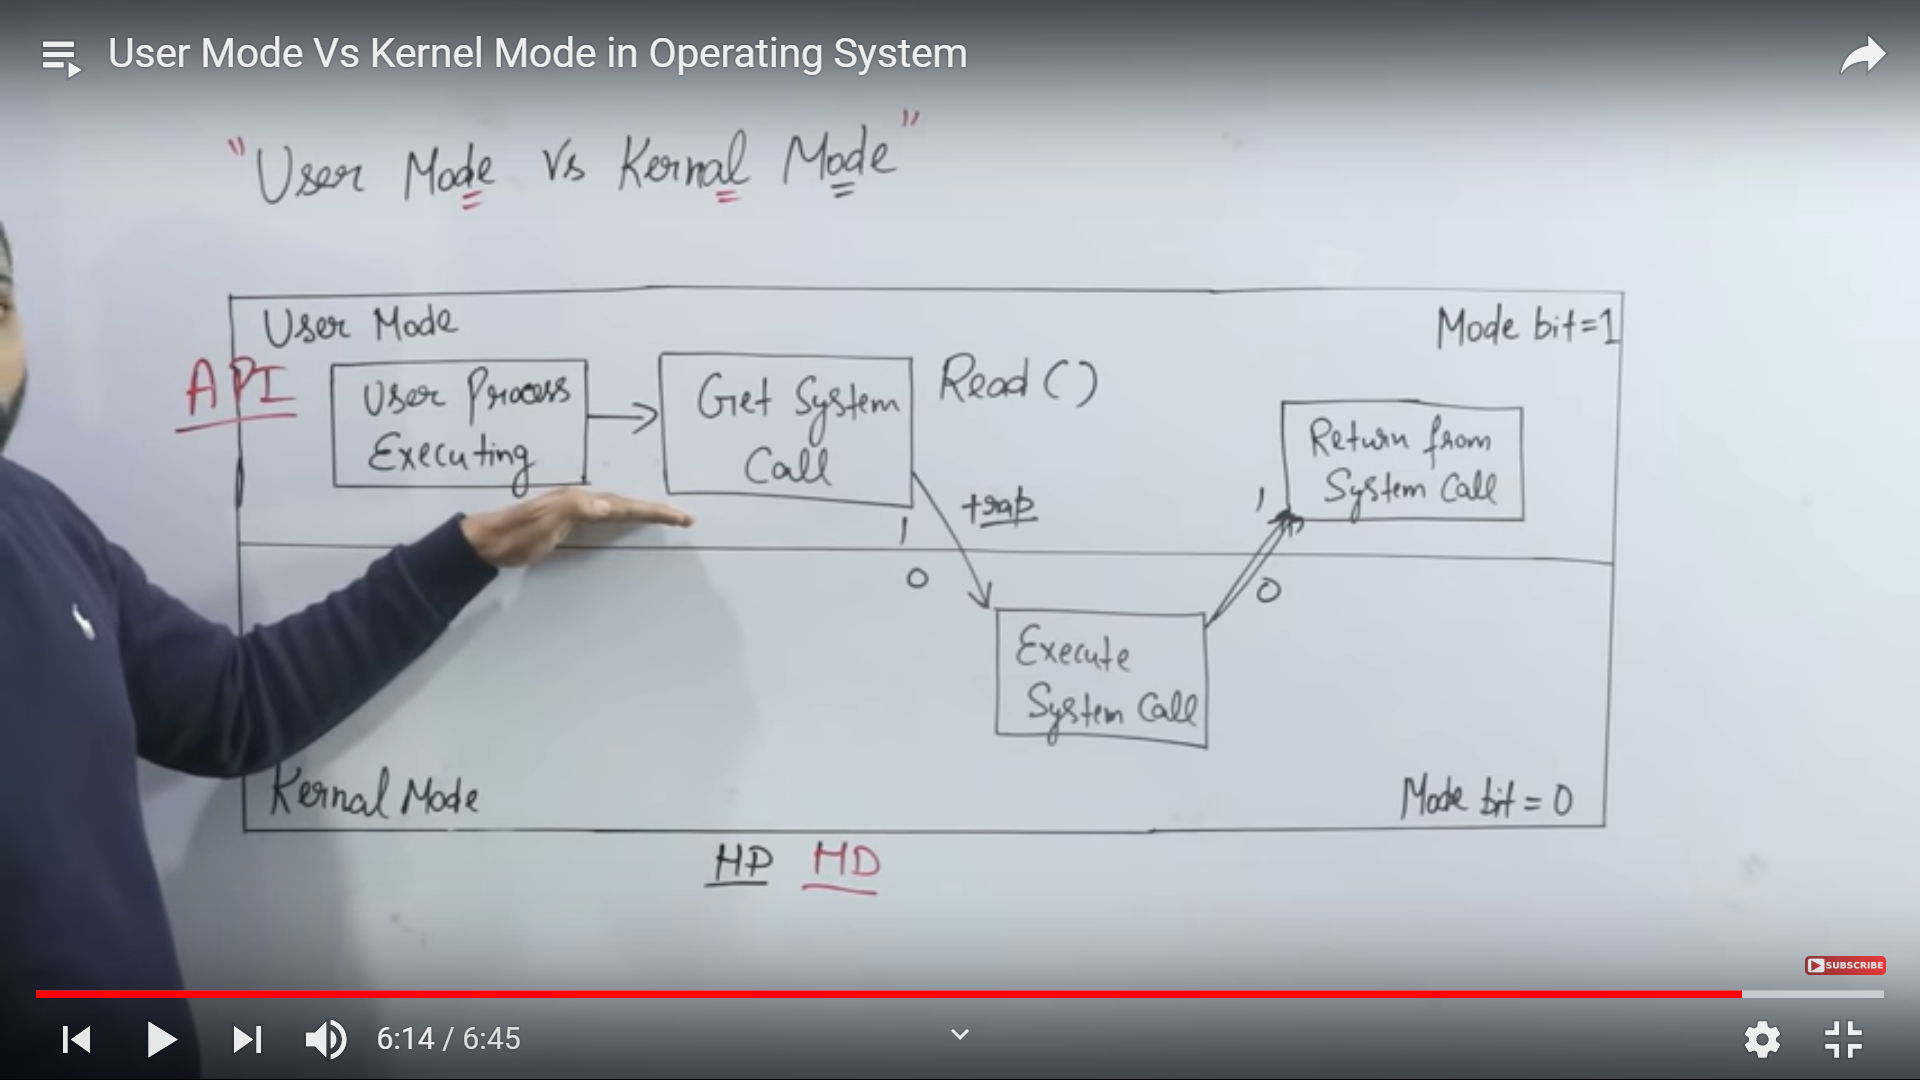 User Mode Vs Kernel Mode in Operating System
"User Mode Vs Kernal Mode"
User Mode
Mode bit=1
API
User Process
Executing
Get System
Call
Read()
Return from
System Call
trap
1
1
0
0
Execute
System Call
Kernal Mode
Mode bit = 0
HP HD
SUBSCRIBE
6:14 / 6:45